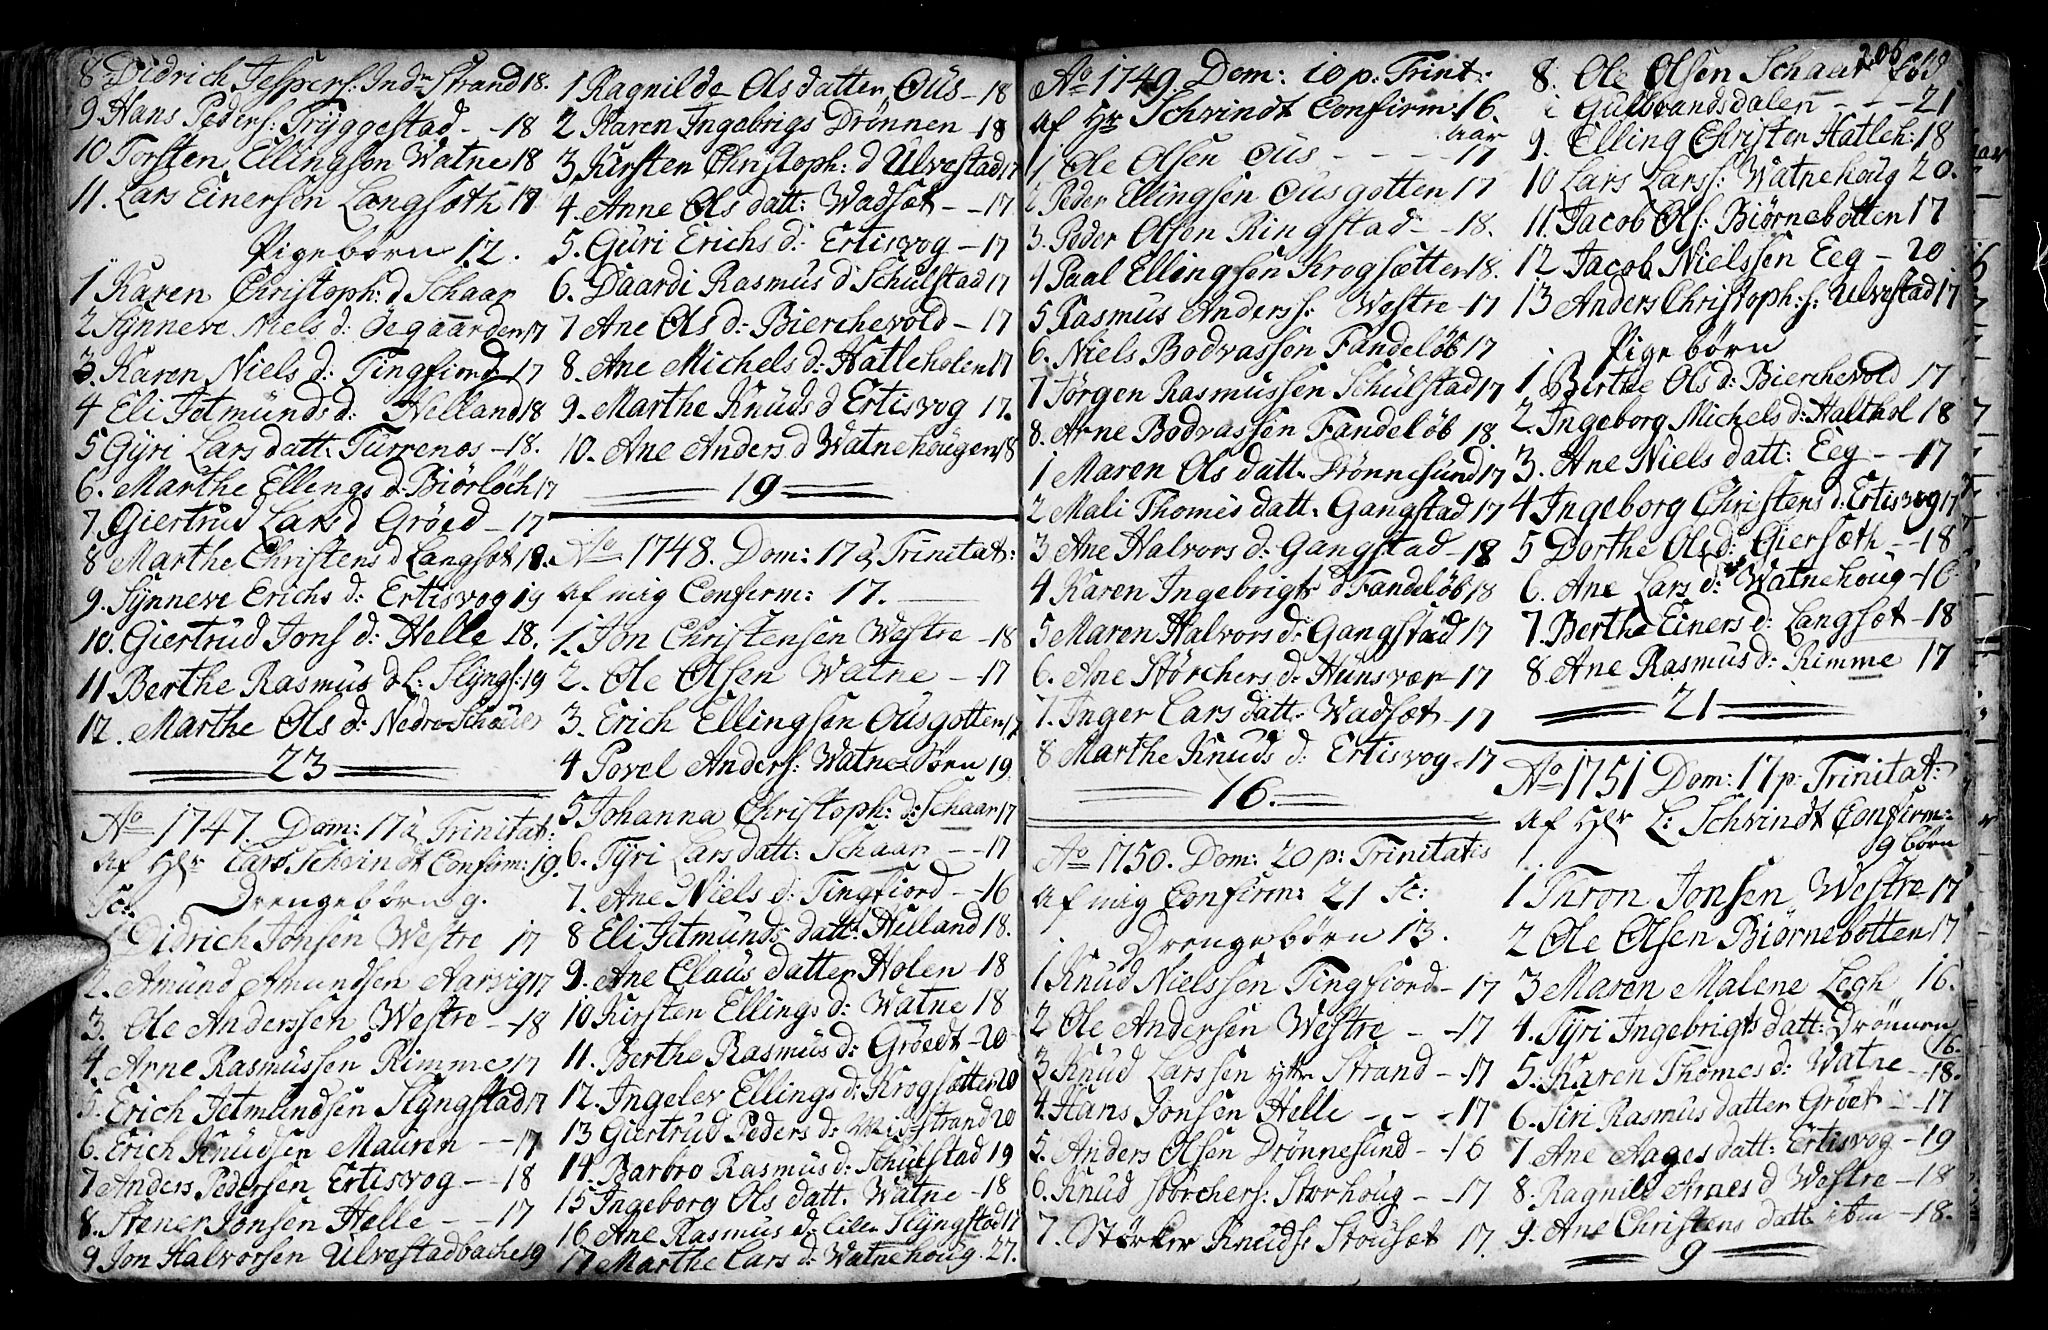 8 Didrich Jespers: Indr Strand 18.
9 Hans Peders: Tryggestad - - 18
10 Torsten Ellingsen Watne 18
11. Lars Einersen Langsæth 19
Pigebørn 12.
1 Karen Christoph: d Schaar
2 Synneve Niels d: Øegaarden 17
3. Karen Niels d: Tingfiord 17
4 Eli Jetmunds d: Helland 18
5 Gyri Lars datt: Turrenos - 18.
6. Marthe Ellings d: Biørløch 17
7. Giertrud Lars d Grøed - 17
8 Marthe Christens d Langsøt 18.
9. Synneve Erichs d: Ertisvog 19
10. Giertrud Jons d: Helle 18.
11 Berthe Rasmus d L: Slyngs: 19
12. Marthe Ols d: Nedre-Schaue
23
Ao 1747. Dom: 17 à Trinitat:
af Hr Lars Schvindt Confirm: 19.
Sc: Drengebørn 9.
1 Didrich Jonsen Westre 17
2. Amund Amundsen Aarvig 17
3. Ole Anderssen Westre - - 18
4 Arne Rasmussen Rimme 17
5. Erich Jetmundsen Slyngstad 17
6. Erich Knudsen Mauren - - 17
7 Anders Pedersen Ertisvog - 18
8. Stener Jonsen Helle - - 17
9 Jon Halvorsen Ulvestadbache 19
1 Ragnilde Olsdatter Ous - 18
2 Karen Ingebrigs Drønnen - 18
3. Kirsten Christoph: d Ulvestad 17
4. Anne Ols datt: Wadsæt - - 17
5. Guri Erichs d: Ertisvog - 17
6. Daardi Rasmus d Schulstad 17
7 Ane Ols d: Bierchevold - 17
8. Ane Michels d: Hatleholen 17
9. Marthe Knuds d Ertisvog 17.
10. Ane Anders d Watnehougen 18
19
Ao 1748. Dom: 17 à Trinitat:
af mig Confirm: 17.
1. Jon Christensen Westre - 18
2. Ole Olsen Watne - 17
3. Erich Ellingsen Ousgotten 17
4 Povel Anders: Watne Børn 19.
5 Johanna Christoph: d: Schaar 17
6. Tyri Lars datt: Schaar - - 17
7. Ane Niels d: Tingfiord - - 16
8 Eli Jetmunds datt: Helland 18.
9. Ane Claus datter Holen - 18
10 Kirsten Ellings d: Watne 18
11. Berthe Rasmus d: Grøedt - 20
12. Ingelev Ellings d: Krogsætter 20
13 Giertrud Peders d: Midstrand 20
14. Barbro Rasmus d: Schulstad 19
15 Ingeborg Ols datt. Watne - 18
16 Ane Rasmus d: Lille Slyngstad 17
17 Marthe Lars d: Watnehoug. 27.
206
Ao 1749. Dom: 10 p: Trint:
af Hr Schvindt Confirm: 16.
aar
1 Ole Olsen Ous - - - - 17
2 Peder Ellingsen Ousgotten 17
3. Peder Olsen Ringstad - - 18.
4 Paal Ellingsen Krogsætter 18.
5 Rasmus Anderss: Westre - 17
6. Niels Bodvassen Fandeløb 17
7 Jørgen Rasmussen Schulstad 17
8. Arne Bodvassen Fandeløb 18.
1 Maren Ols datt. Drønnesund 17
2 Mali Thomes datt. Gangstad 17
3 Ane Halvors d: Gangstad - 18
4 Karen Ingebrigts d Fandeløb 18
5 Maren Halvors d: Gangstad 17
6. Ane Størchers d: Hunsvær - 17
7. Inger Lars datt: Wadsæt - 17
8 Marthe Knuds d: Ertisvog - 17
16.
Ao 1750. Dom: 20 p: Trinitatis
af mig Confirm: 21 Sc:
Drengebørn 13.
1 Knud Nielssen Tingfiord - 17
2 Ole Andersen Westre - - 17
3 Knud Larssen yttr Strand - 17
4. Hans Jonsen Helle - - - 17
5. Anders Olsen Drønnesund - 16
6. Knud Størchers: Storhoug - - 17
7. Størker Knuds: Stousæt 17.
8. Ole Olsen Schaar fød
i Gulbrandsdalen - - - 21
9. Elling Christen Hatleh: 18
10 Lars Larss: Watnehoug 20.
11. Jacob Ols: Biørnebotten 17
12 Jacob Nielssen Eeg - 20
13 Anders Christoph: s: Ulvestad 17
Pigebørn
1 Berthe Ols d: Bierchevold 17
2. Ingeborg Michels d: Halthol 18
3. Ane Niels datt: Eeg - - 17
4 Ingeborg Christens d: Ertisvog 17
5 Dorthe Ols d: Giersæth - - 18
6. Ane Lars d: Watnehoug - 16
7. Berthe Einers d: Langsæt - 18
8 Ane Rasmus d: Rimme 17
21
Ao 1751 Dom: 17 p: Trinitat:
af Hr L: Schvindt Confirm:
9 børn
1 Thron Jonsen Westre 17
2 Ole Olsen Biørnebotten 17
3 Maren Malene Legh 16.
4. Tyri Ingebrigts datt: Drønnen
16.
5. Karen Thomes d: Watne - 18.
6. Siri Rasmus datter Grøet - - 17
7 Ane Aages datt: Ertisvog - 19
8. Ragnild Arnes d Westre - 18
9. Ane Christens datt. ibm - 18.
9